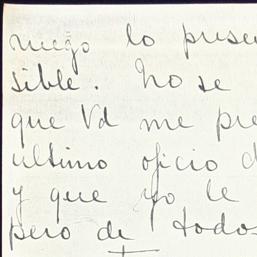 ruego lo prese
sible. No se
que Vd me pre
ultimo oficio d
y que yo le
pero de todos